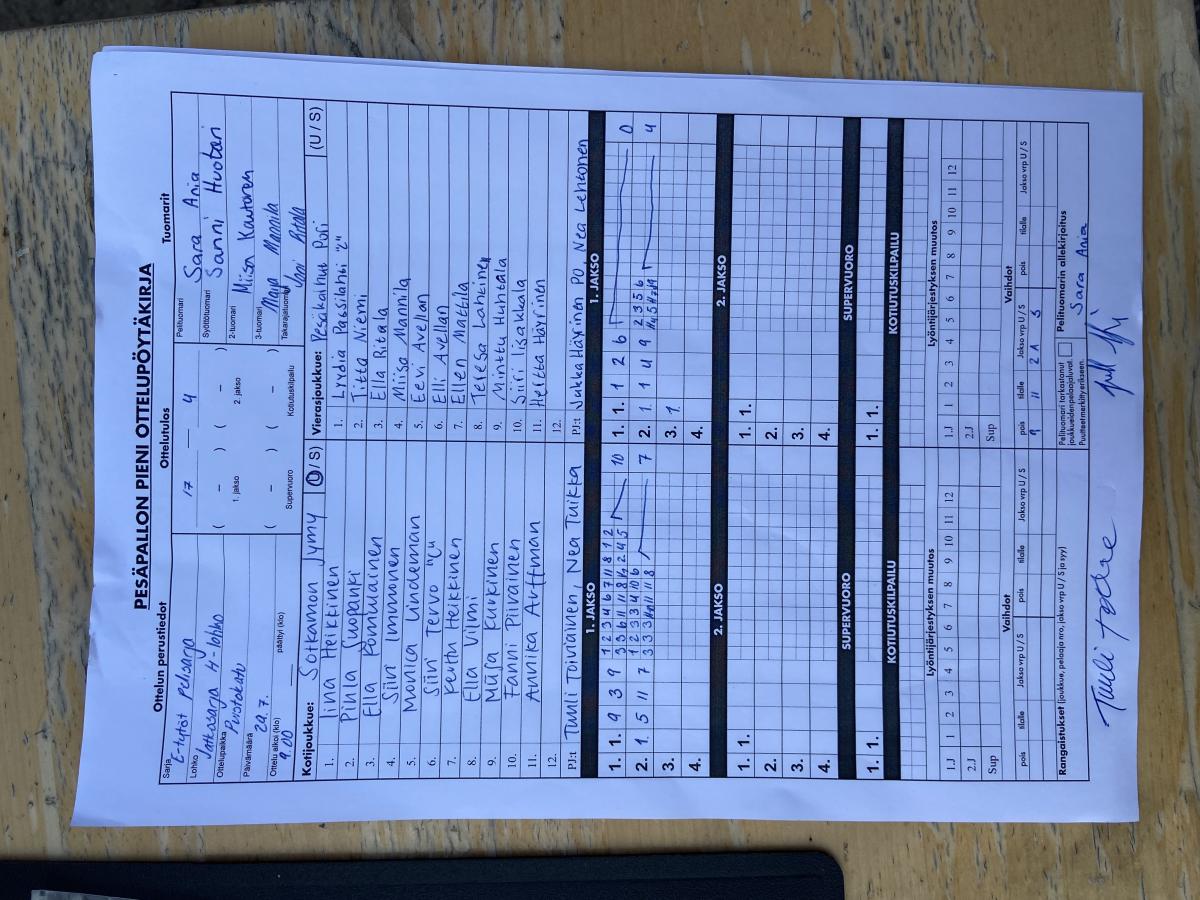 PESÄPALLON PIENI OTTELUPÖYTÄKIRJA
Ottelun perustiedot
Ottelutulos
Tuomarit
Sarja E-tytöt pelisarja
Lohko Jatkosarja H-lohko
Ottelupaikka Puistokatu
Päivämäärä 29.7.
Ottelu alkoi (klo) 9.00 päättyi (klo)
17 — 4
( – ) ( – )
1. jakso 2. jakso
( – ) ( – )
Supervuoro Kotiutuskilpailu
Pelituomari Sara Ania
Syöttötuomari Sanni Huotari
2-tuomari Miisa Kautonen
3-tuomari Maija Mannila
Takarajatuomari Jani Ritala
Kotijoukkue: Sotkamon Jymy (U / S)
1. Iina Heikkinen
2. Pihla Suopanki
3. Ella Pöntiläinen
4. Siiri Immonen
5. Monica Lindeman
6. Siiri Tervo "L"
7. Kerttu Heikkinen
8. Ella Vilmi
9. Maija Kurkinen
10. Fanni Piirainen
11. Annika Arffman
12.
PJ:t Tuuli Toiviainen, Nea Tuikka
Vierasjoukkue: Pesäkarhut Pori (U / S)
1. Lyydia Passilahti "L"
2. Titta Niemi
3. Ella Ritala
4. Miisa Mannila
5. Eevi Avellan
6. Elli Avellan
7. Ellen Mattila
8. Teresa Lahtinen
9. Minttu Huhtala
10. Siiri Iisakkala
11. Hertta Häyrinen
12.
PJ:t Jukka Häyrinen PO, Nea Lehtonen
1. JAKSO
1. 1. 9 3 9 1 2 3 4 6 7 11 8 1 2 10
2. 1. 5 11 7 1 2 3 3 4 10 6 7
3.
4.
1. JAKSO
1. 1. 1 2 6 0
2. 1. 1 4 9 2 3 5 6 4
3. 1.
4.
2. JAKSO
1. 1.
2.
3.
4.
2. JAKSO
1. 1.
2.
3.
4.
SUPERVUORO
1. 1.
SUPERVUORO
1. 1.
KOTIUTUSKILPAILU
KOTIUTUSKILPAILU
Lyöntijärjestyksen muutos
1.J 1 2 3 4 5 6 7 8 9 10 11 12
2.J
Sup
Vaihdot
pois tilalle Jakso vrp U / S pois tilalle Jakso vrp U / S
Lyöntijärjestyksen muutos
1.J 1 2 3 4 5 6 7 8 9 10 11 12
2.J
Sup
Vaihdot
pois tilalle Jakso vrp U / S pois tilalle Jakso vrp U / S
9 11 2 A S
Rangaistukset (joukkue, pelaaja nro, jakso vrp U / S ja syy)
Pelituomari tarkastanut joukkueiden pelaajaluvat
Puutteet merkitty erikseen.
Pelituomarin allekirjoitus
Sara Ania